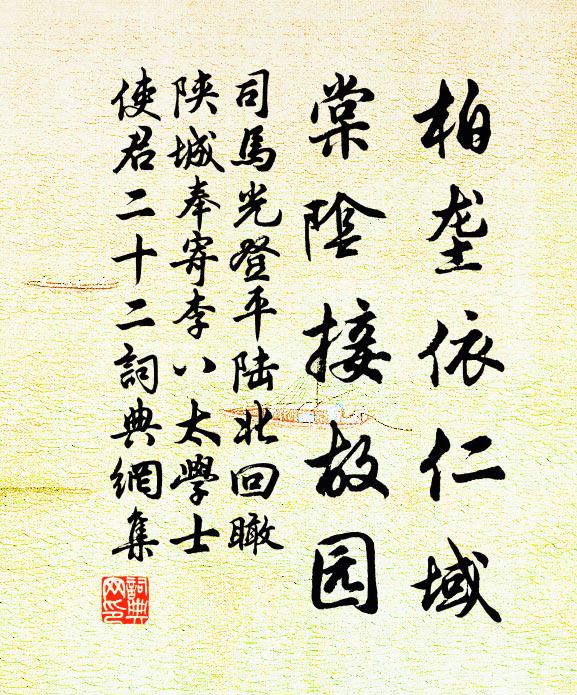 柏垄依仁域
棠陰接故园
司馬光登平陆北回瞰
陕城奉寄李八太學士
使君二十二詞典網集
詞典
网印